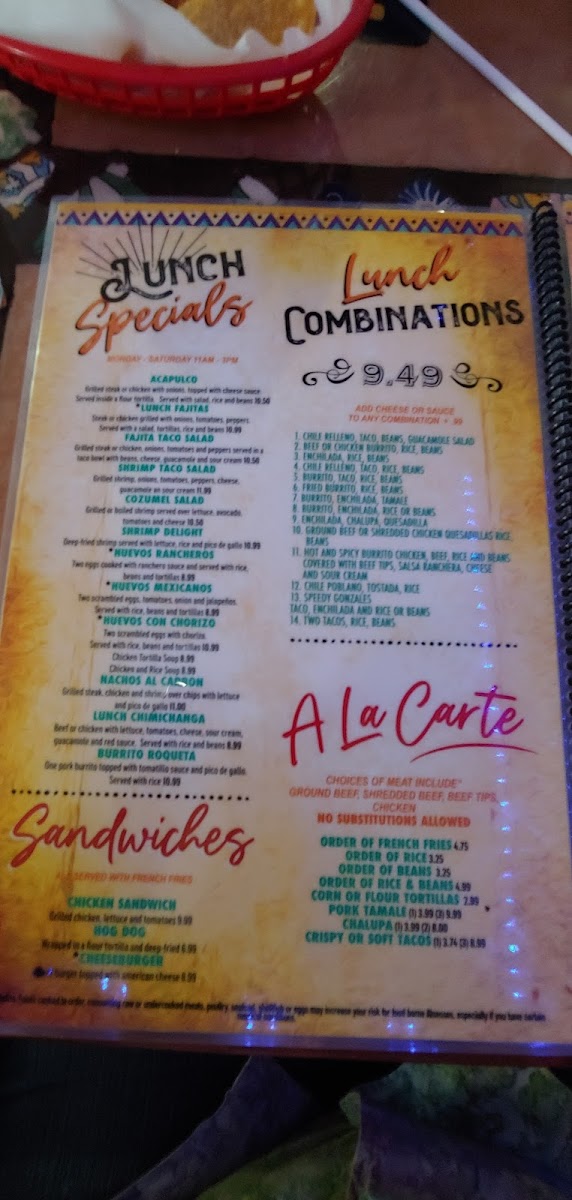 Lunch
Specials
MONDAY - SATURDAY 11AM - 3PM
ACAPULCO
Grilled steak or chicken with onions, topped with cheese sauce
Served inside a flour tortilla. Served with salad, rice and beans 10.50
*LUNCH FAJITAS
Steak or chicken grilled with onions, tomatoes, peppers
Served with a salad, tortillas, rice and beans 10.99
FAJITA TACO SALAD
Grilled steak or chicken, onions, tomatoes and peppers served in a
taco bowl with beans, cheese, guacamole and sour cream 10.50
SHRIMP TACO SALAD
Grilled shrimp, onions, tomatoes, peppers, cheese,
guacamole an sour cream 11.99
COZUMEL SALAD
Grilled or boiled shrimp served over lettuce, avocado,
tomatoes and cheese 10.50
SHRIMP DELIGHT
Deep-fried shrimp served with lettuce, rice and pico de gallo 10.99
*HUEVOS RANCHEROS
Two eggs cooked with ranchero sauce and served with rice,
beans and tortillas 8.99
*HUEVOS MEXICANOS
Two scrambled eggs, tomatoes, onion and jalapeños.
Served with rice, beans and tortillas 8.99
*HUEVOS CON CHORIZO
Two scrambled eggs with chorizo.
Served with rice, beans and tortillas 10.99
Chicken Tortilla Soup 8.99
Chicken and Rice Soup 8.99
NACHOS AL CARBON
Grilled steak, chicken and shrimp over chips with lettuce
and pico de gallo 11.00
LUNCH CHIMICHANGA
Beef or chicken with lettuce, tomatoes, cheese, sour cream,
guacamole and red sauce. Served with rice and beans 8.99
BURRITO ROQUETA
One pork burrito topped with tomatillo sauce and pico de gallo.
Served with rice 10.99
Sandwiches
ALL SERVED WITH FRENCH FRIES
CHICKEN SANDWICH
Grilled chicken, lettuce and tomatoes 9.99
HOG DOG
Wrapped in a flour tortilla and deep-fried 6.99
*CHEESEBURGER
burger topped with american cheese 8.99
Lunch
COMBINATIONS
9.49
ADD CHEESE OR SAUCE
TO ANY COMBINATION + .99
1. CHILE RELLENO, TACO, BEANS, GUACAMOLE SALAD
2. BEEF OR CHICKEN BURRITO, RICE, BEANS
3. ENCHILADA, RICE, BEANS
4. CHILE RELLENO, TACO, RICE, BEANS
5. BURRITO, TACO, RICE, BEANS
6. FRIED BURRITO, RICE, BEANS
7. BURRITO, ENCHILADA, TAMALE
8. BURRITO, ENCHILADA, RICE OR BEANS
9. ENCHILADA, CHALUPA, QUESADILLA
10. GROUND BEEF OR SHREDDED CHICKEN QUESADILLAS RICE,
BEANS
11. HOT AND SPICY BURRITO CHICKEN, BEEF, RICE AND BEANS
COVERED WITH BEEF TIPS, SALSA RANCHERA, CHEESE
AND SOUR CREAM
12. CHILE POBLANO, TOSTADA, RICE
13. SPEEDY GONZALES
TACO, ENCHILADA AND RICE OR BEANS
14. TWO TACOS, RICE, BEANS
A La Carte
CHOICES OF MEAT INCLUDE*
GROUND BEEF, SHREDDED BEEF, BEEF TIPS,
CHICKEN
NO SUBSTITUTIONS ALLOWED
ORDER OF FRENCH FRIES 4.75
ORDER OF RICE 3.25
ORDER OF BEANS 3.25
ORDER OF RICE & BEANS 4.99
CORN OR FLOUR TORTILLAS 2.99
PORK TAMALE (1) 3.99 (3) 9.99
CHALUPA (1) 3.99 (2) 8.00
CRISPY OR SOFT TACOS (1) 3.74 (3) 8.99
foods cooked to order, consuming raw or undercooked meats, poultry, seafood, shellfish or eggs may increase your risk for food borne illnesses, especially if you have certain